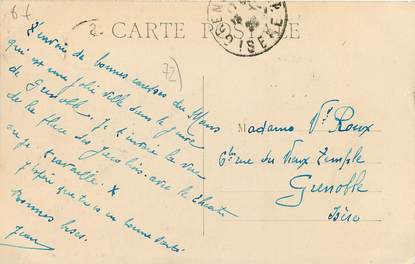 67
2.
CARTE POSTALE
ISERE
72
J'envoie de bonnes caresses du Mans
qui est une jolie ville dans le genre
de Grenoble. Je t'envoie la vue
de la place des Jacobins avec le théatre
où je travaille. X
J'espère que tu es en bonne santé
Bonnes bises.
Jean
Madame Vve Roux
6 bis rue du Vieux Temple
Grenoble
Isère